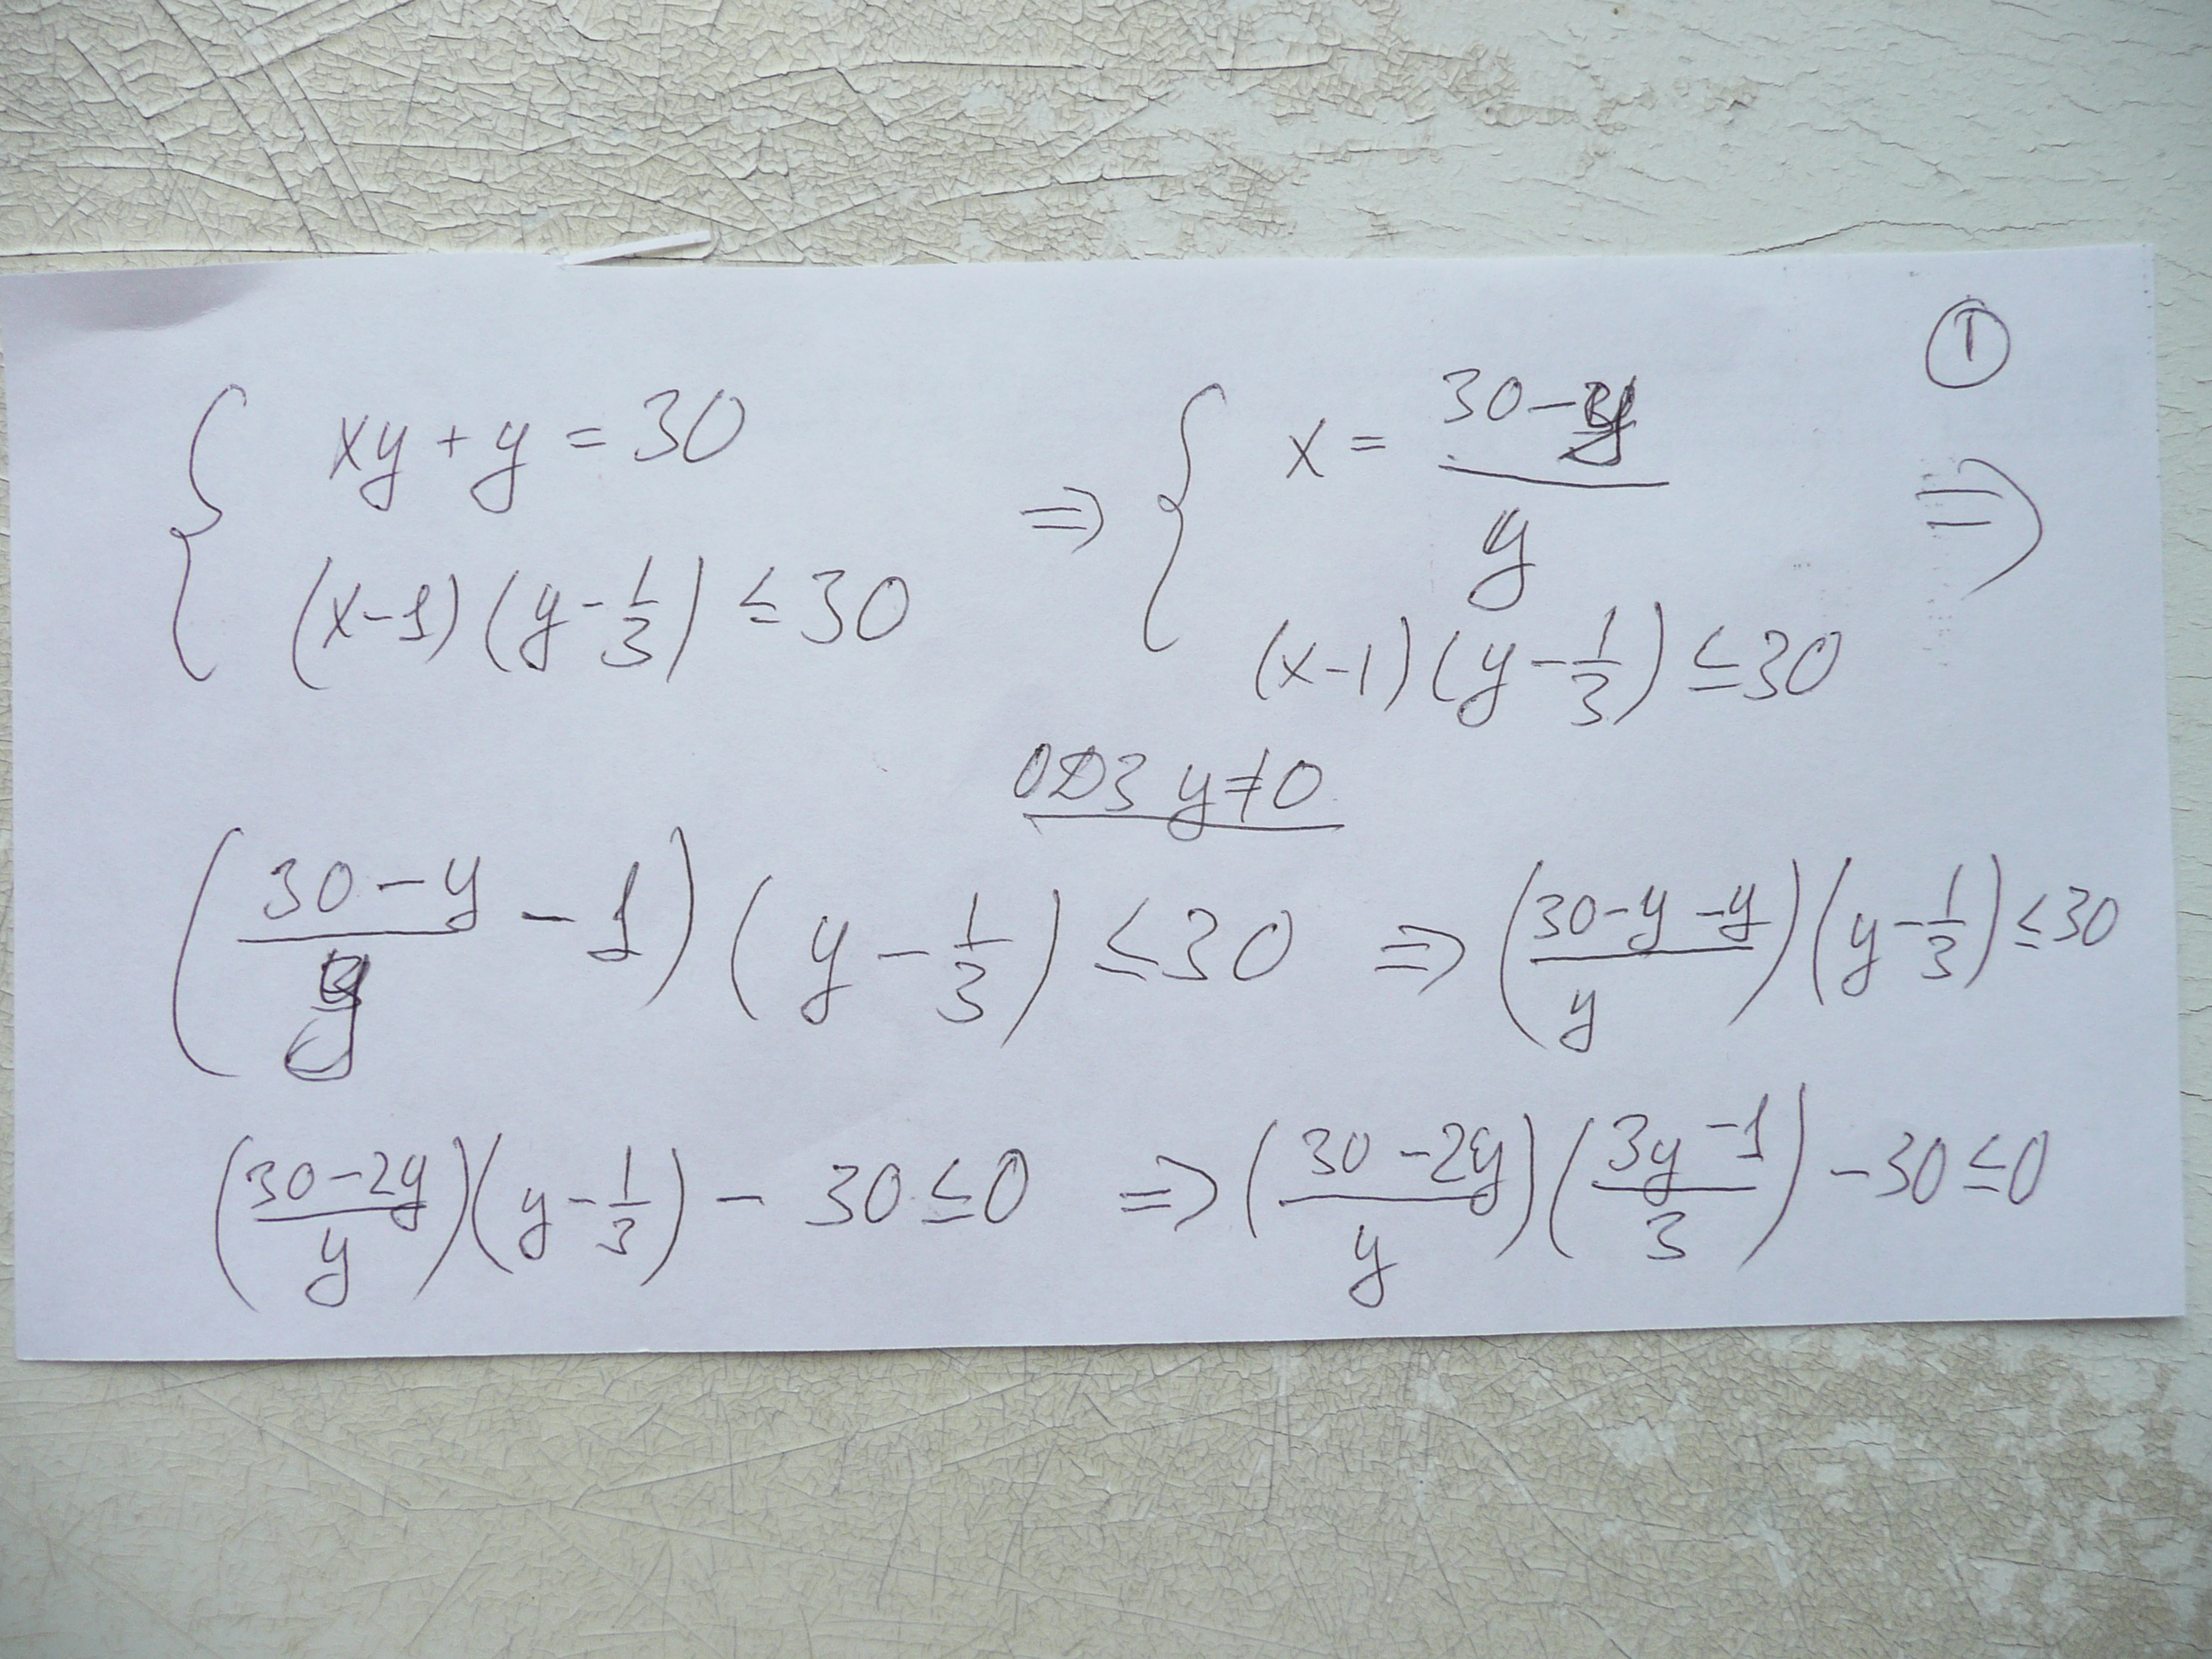 ①
{ xy + y = 30 => { x = (30 - y)/y =>
(x-1)(y - 1/3) ≤ 30 (x-1)(y - 1/3) ≤ 30
ОДЗ y ≠ 0
((30 - y)/y - 1)(y - 1/3) ≤ 30 => ((30 - y - y)/y)(y - 1/3) ≤ 30
((30 - 2y)/y)(y - 1/3) - 30 ≤ 0 => ((30 - 2y)/y)((3y - 1)/3) - 30 ≤ 0